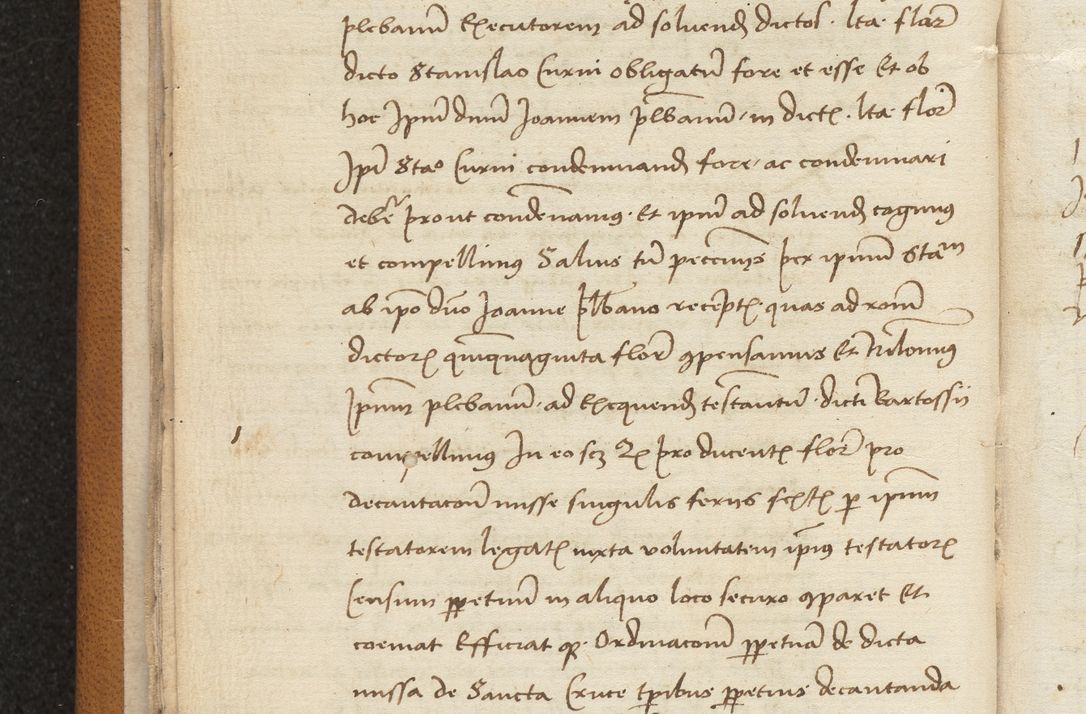 plebanum Executorem ad soluend dictos · lta flor
dicto Stanislao Curui obligatum fore et esse Et ob
hoc Ipm dnum Joannem plbanum · in dict · lta flor
Ipi Stao Curui condemnand fore · ac condemnari
deber prout condenamus · Et ipm ad soluend cogimus
et compellimus Saluis tn peccuys per ipsum Stam
ab ipo dno Joanne plbano recept quas ad ronem
dictor quinquaginta flor compensamus Et
Ipsum plebanum · ad Exequend testamentum · dicti Bartossii
compellimus In eo scz Quod pro ducent flor pro
decantacom misse singulis feriis sext per ipsum
testatorem legat iuxta voluntatem ipius testator
Censum ppetuum in aliquo loco securo comparet Et
coemat Efficiat que Ordinacom ppetua de dicta
missa de Sancta Cruce tpibus ppetuis decantanda